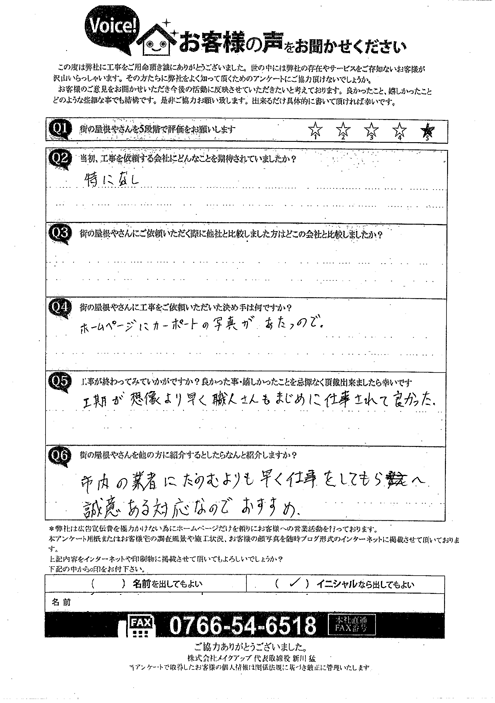 Voice!
お客様の声をお聞かせください
この度は弊社に工事をご用命頂き誠にありがとうございました。世の中には弊社の存在やサービスをご存知ないお客様が
沢山いらっしゃいます。その方たちに弊社をよく知って頂くためのアンケートにご協力頂けないでしょうか。
お客様のご意見をお聞かせいただき今後の活動に反映させていただきたいと考えております。良かったこと、嬉しかったこと
どのような些細な事でも結構です。是非ご協力お願い致します。出来るだけ具体的に書いて頂ければ幸いです。
Q1 街の屋根やさんを5段階で評価をお願いします
1 2 3 4 5
Q2 当初、工事を依頼する会社にどんなことを期待されていましたか?
特になし
Q3 街の屋根やさんにご依頼いただく際に他社と比較しました方はどこの会社と比較しましたか?
Q4 街の屋根やさんに工事をご依頼いただいた決め手は何ですか?
ホームページにカーポートの写真が あたっので。
Q5 工事が終わってみていかがですか?良かった事・嬉しかったことを忌憚なく頂戴出来ましたら幸いです
工期が想像より早く職人さんもまじめに仕事されて良かった。
Q6 街の屋根やさんを他の方に紹介するとしたらなんと紹介しますか?
市内の業者にたのむよりも早く仕事をしてもらえ
誠意ある対応なのでおすすめ。
*弊社は広告宣伝費を極力かけない為にホームページだけを頼りにお客様への営業活動を行っております。
本アンケート用紙またはお客様宅の調査風景や施工状況、お客様の顔写真を随時ブログ形式のインターネットに掲載させて頂いておりま
す。
上記内容をインターネットや印刷物に掲載させて頂いてもよろしいでしょうか?
下記の中から○印をお付下さい。
( ) 名前を出してもよい
( ✓ ) イニシャルなら出してもよい
名前
FAX 0766-54-6518 本社直通 FAX番号
ご協力ありがとうございました。
株式会社メイクアップ 代表取締役 新川 猛
*アンケートで取得したお客様の個人情報は関係法規に基づき適正に管理いたします